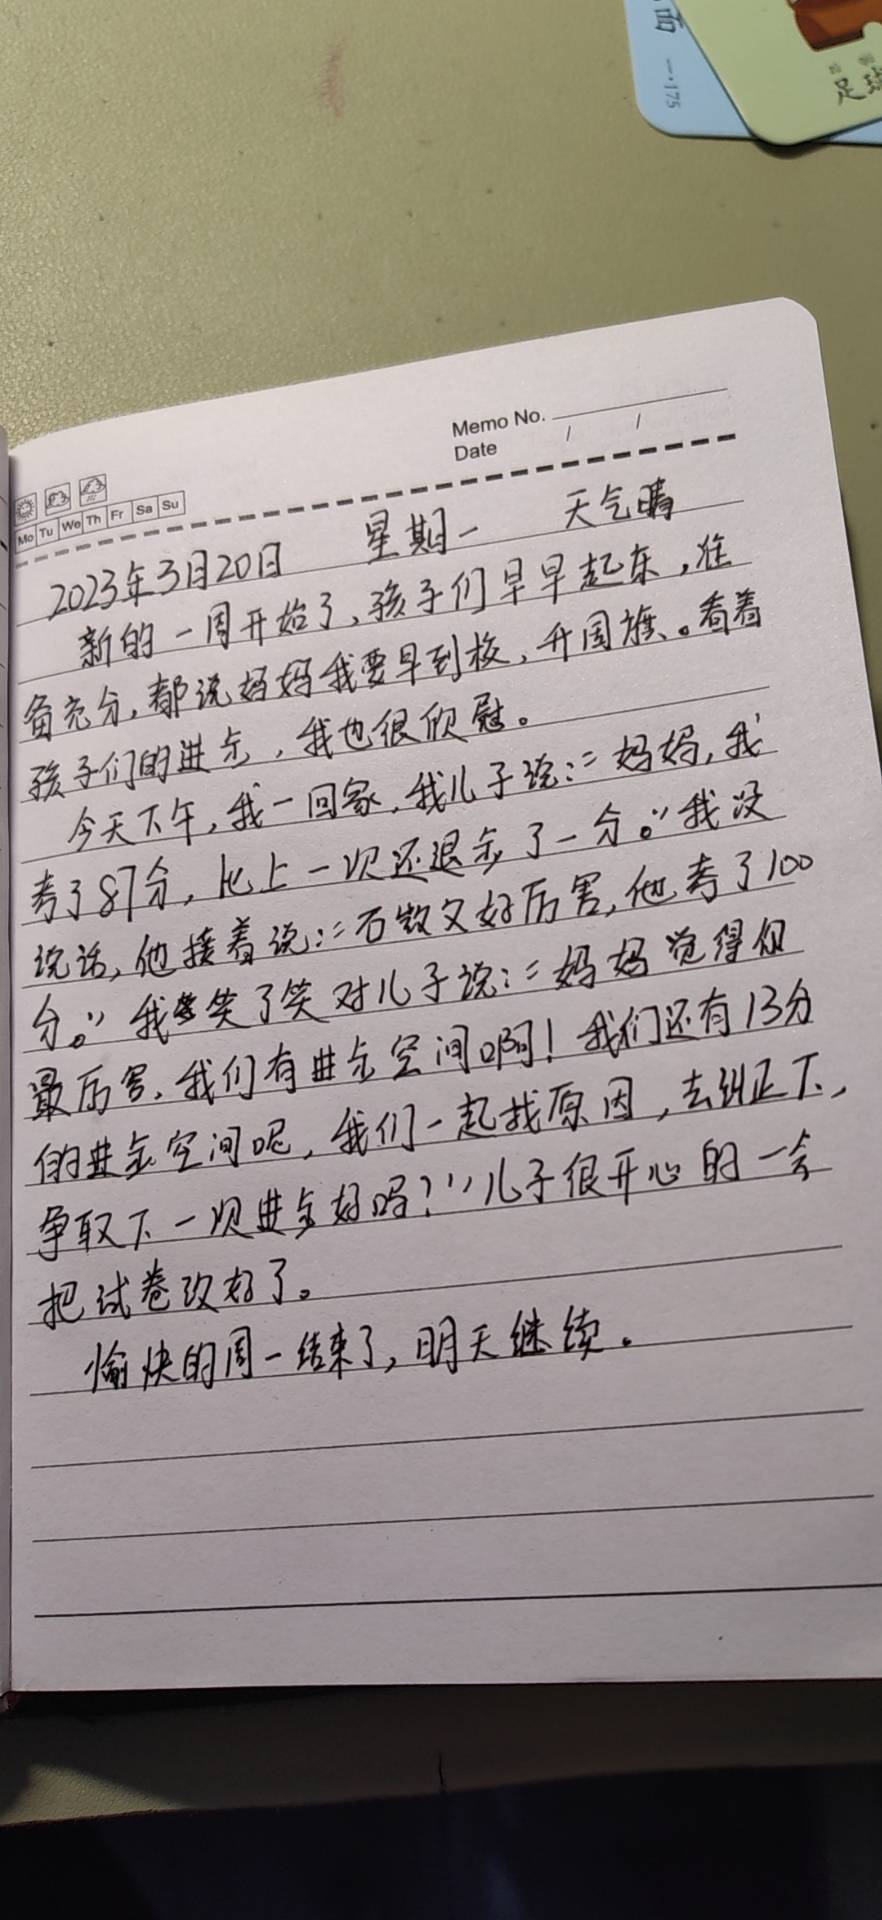 面 一·175
足球
Memo No.
Date / /
Mo Tu We Th Fr Sa Su
2023年3月20日 星期一 天气晴
新的一周开始了,孩子们早早起床,准
备充分,都说妈妈我要早到校,升国旗。看着
孩子们的进步,我也很欣慰。
今天下午,我一回家,我儿子说:“妈妈,我
考了87分,比上一次还退步了一分。”我没
说话,他接着说:“石数文好厉害,他考了100
分。”我笑了笑对儿子说:“妈妈觉得你
最厉害,我们有进步空间啊!我们还有13分
的进步空间呢,我们一起找原因,去纠正下,
争取下一次进步好吗?”儿子很开心的一会
把试卷改好了。
愉快的周一结束了,明天继续。